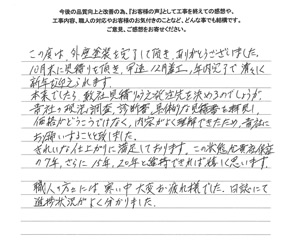 今後の品質向上と改善の為、『お客様の声』として工事を終えての感想や、
工事内容、職人の対応やお客様のお気付きのことなど、どんな事でも結構です。
ご意見、ご感想をお寄せください。
この度は、外壁塗装を完了して頂き、ありがとうございました。
10月末に見積りを頂き、早速12月着工、年内完了で清々しく
新年を迎えられます。
本来でしたら、数社見積りうえ依頼先を決めるのでしょうが、
貴社の現況調査、診断書、具体的な見積書を拝見し、
価格がどうこうではなく、内容がよく理解できたため、貴社に
お願いすることと致しました。
きれいな仕上がりに満足しております。この状態が貴社保証
の7年、さらに15年、20年と維持できれば嬉しく思います。
職人の方々には寒い中大変お疲れ様でした。日誌にて
進捗状況がよく分かりました。